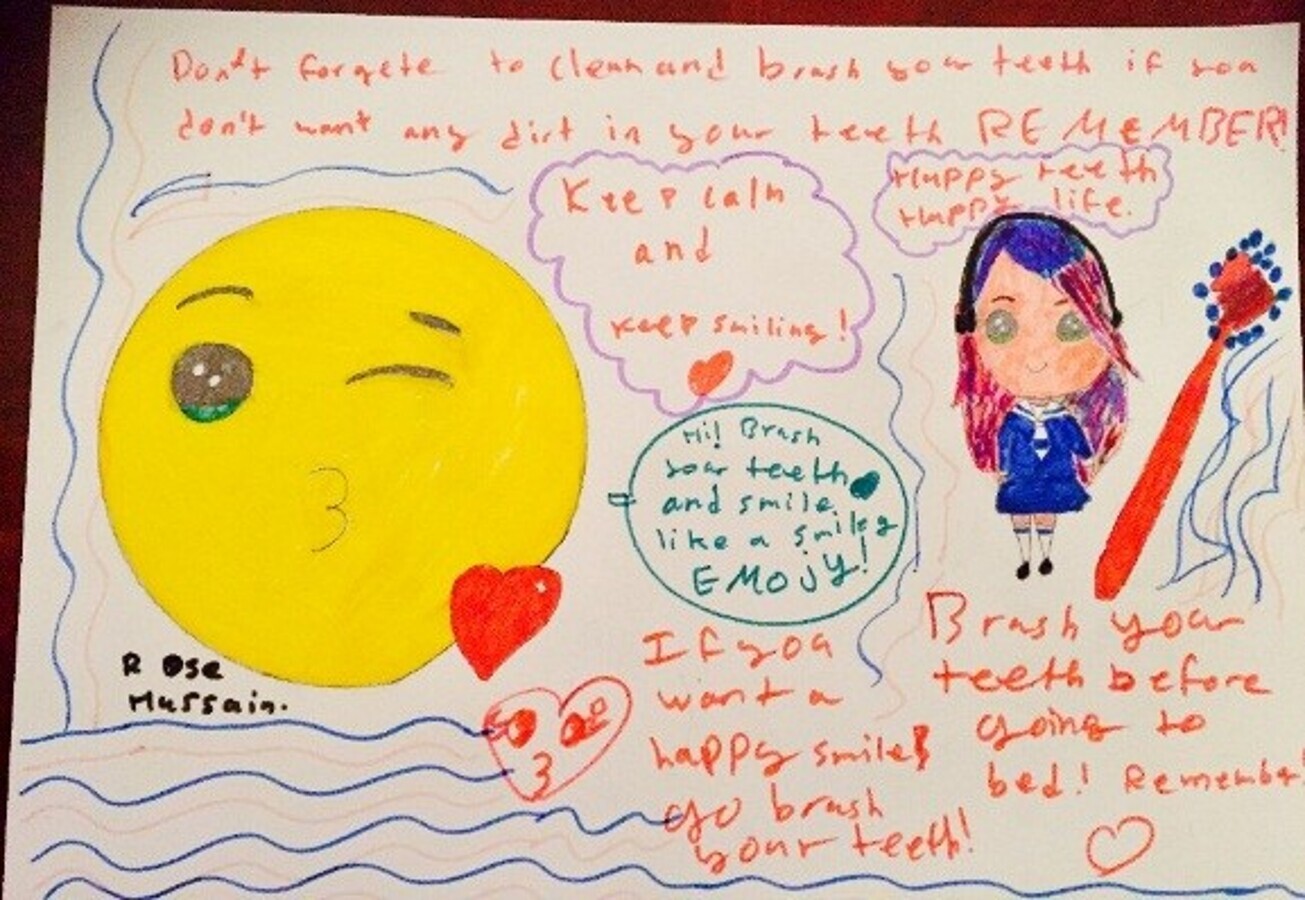 Don't forgete to clean and brash your teeth if you
don't want any dirt in your teeth REMEMBER!
Keep calm
and
keep smiling!
Happy teeth
Happy life.
Hi! Brash
your teeth
and smile
like a smiley
EMOJY!
Rose
Hussain.
If you
want a
happy smile!
go brash
your teeth!
Brash your
teeth before
going to
bed! Remember!